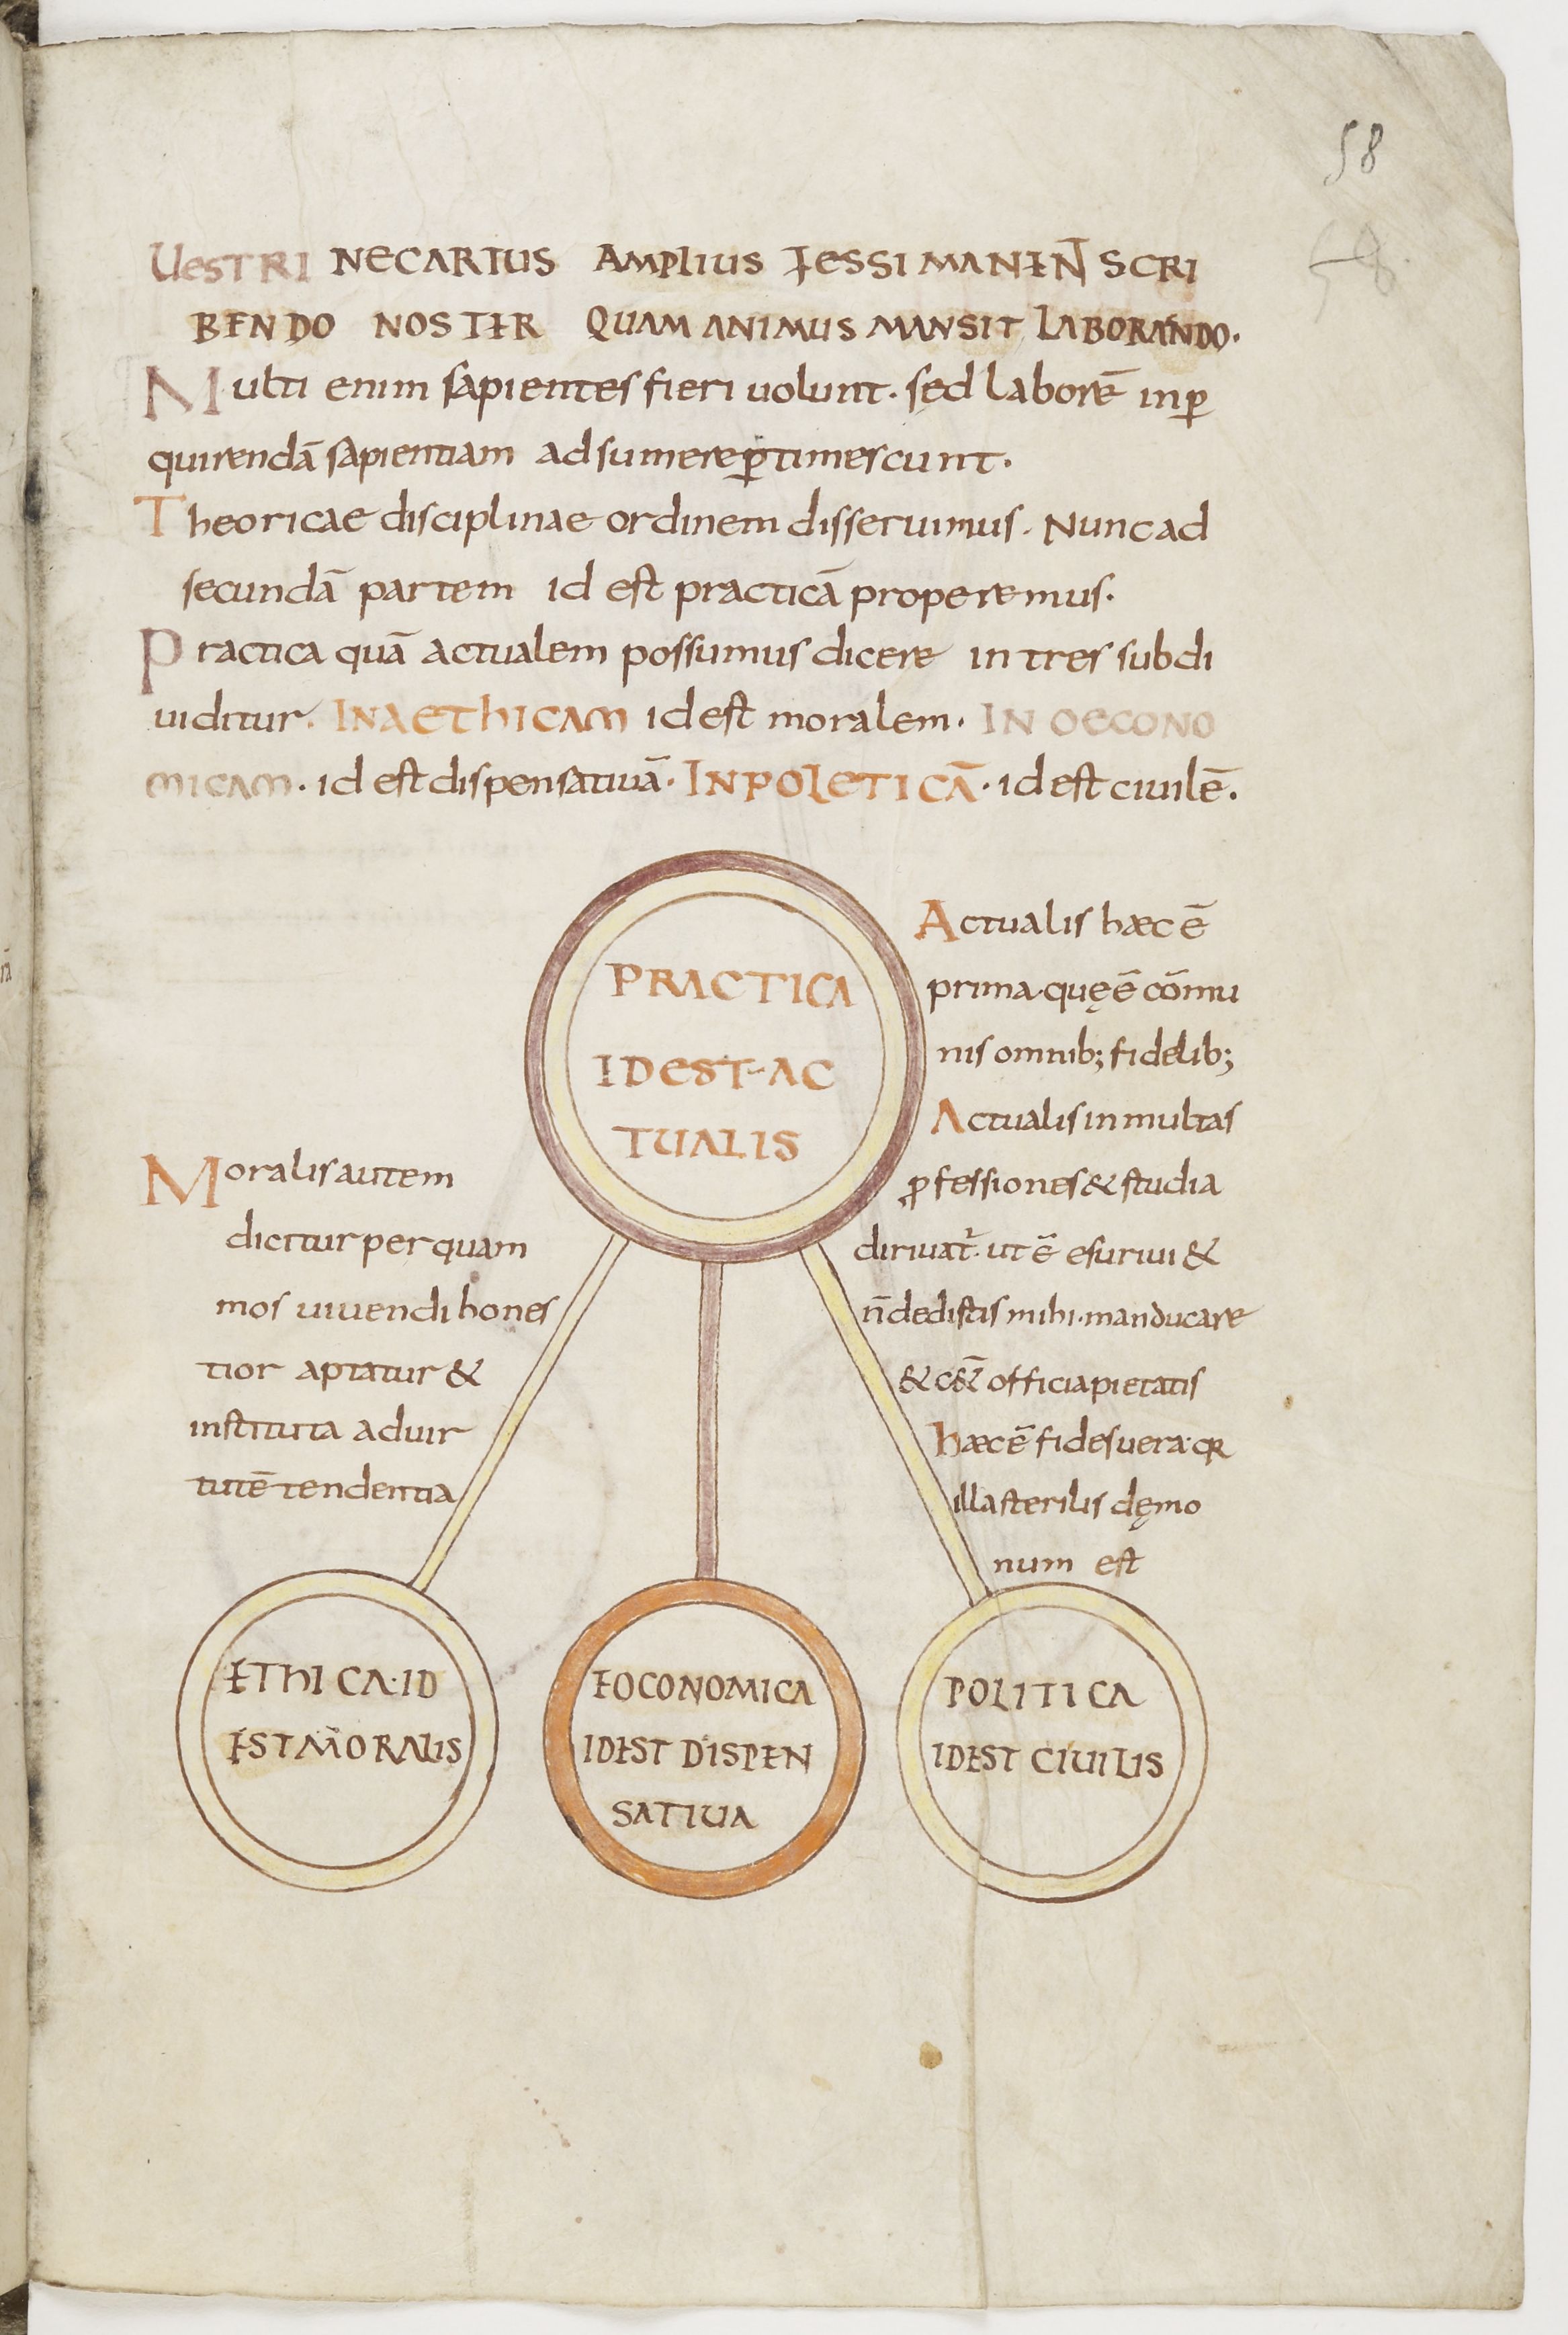 58
58
UESTRI NECARTUS AMPLIUS FESSI MANENT̄ SCRI
BENDO NOSTER QUAM ANIMUS MANSIT LABORANDO.
Multi enim sapientes fieri uolunt. sęd laborē inꝑ
quirendā sapientiam adsumere ꝑtimescunt.
Theoricae disciplinae ordinem disseruimus. Nunc ad
secundā partem id est practicā properemus.
Practica quā actualem possumus dicere in tres subdi
uiditur. IN AETHICAM id est moralem. IN OECONO
MICAM. id est dispensatiuā. IN POLETICĀ. id est ciuilē.
PRACTICA
IDEST-AC
TUALIS
Actualis hæc ē
prima. quę ē cōmu
nis omnib; fidelib;
Actualis in multas
ꝓfessiones & studia
diriuat᷑. ut ē esuriui &
n̄ dedistis mihi. manducare
& cet̄ officia pietatis
hæc ē fides uera. qꝛ
illa sterilis dęmo
num est
Moralis autem
dicitur per quam
mos uiuendi hones
tior aptatur &
instituta ad uir
tutē tendentia
ETHICA. ID
EST MORALIS
EOCONOMICA
IDEST DISPEN
SATIUA
POLITICA
IDEST CIUILIS